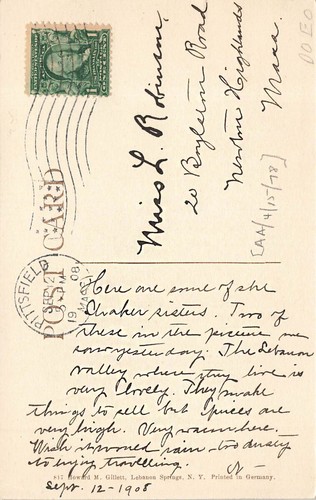 Miss L. Robinson,
20 Boylston Road
Newton Highlands
Mass.
[AA/4/15/78]
POST CARD
PITTSFIELD
SEP 12
PM
1908
MASS.
Here are some of the
Shaker sisters. Two of
these in the picture we
saw yesterday. The Lebanon
valley where they live is
very lovely. They make
things to sell but prices are
very high. Very warm here.
Wish it would rain - too dusty
to enjoy travelling.
617 Howard M. Gillett, Lebanon Springs, N. Y. Printed in Germany.
Sept. 12-1908